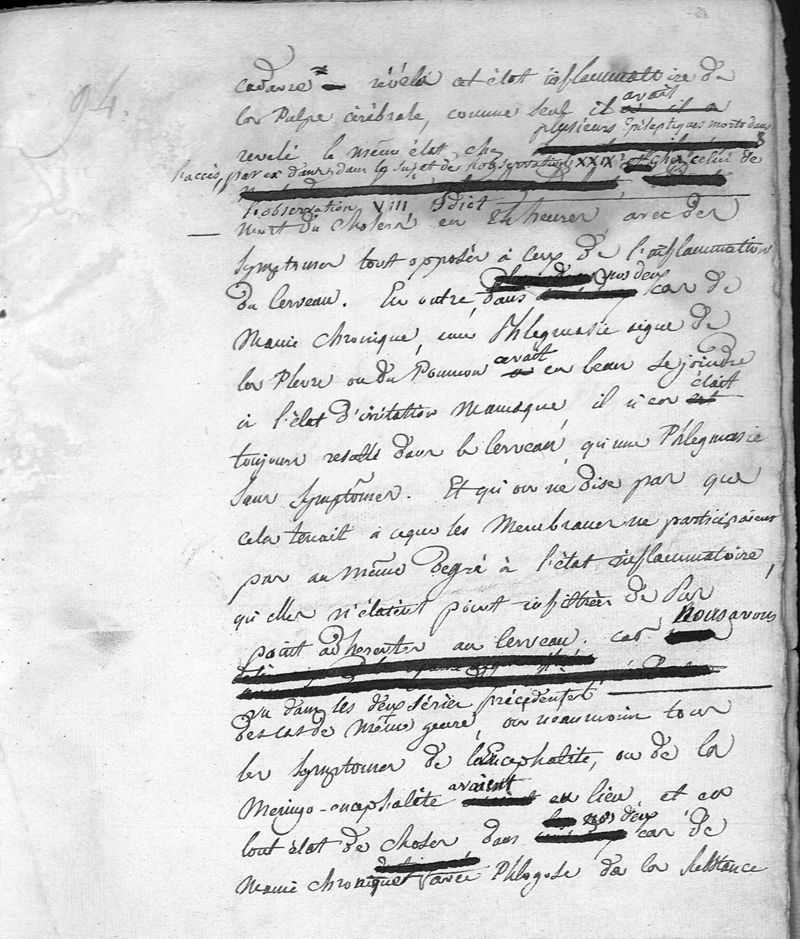 94.
cadavre révéla cet état inflammatoire de
la Pulpe cérébrale, comme seul il avait
plusieurs Epileptiques morts dans
revelé le même état chez
l'accès, par ex. dans le sujet de l'observation XXIX et chez celui de
l'observation VIII
mort du Choléra en 24 heures, avec des
symptomes tout opposés à ceux de l'inflammation
du Cerveau. En outre, dans nos deux cas de
Manie Chronique, une Phlegmasie aigue de
la Plevre ou du Poumon avait eu beau se joindre
à l'état d'irritation Maniaque, il n'en était
toujours resulté dans le Cerveau, qu'une Phlegmasie
sans symptômes. Et qu'on ne dise pas que
cela tenait à ceque les Membranes ne participaient
pas au même degré à l'état inflammatoire,
qu'elles n'étaient point infiltrées de Pus
point adherentes au Cerveau. car nous avons
vu dans les deux séries précédentes
des cas de même genre, ou neanmoins tous
les symptomes de l'Encephalite, ou de la
Meningo-encephalite avaient eu lieu et en
tout état de choses dans nos deux cas de
Manie chronique avec Phlogose de la substance